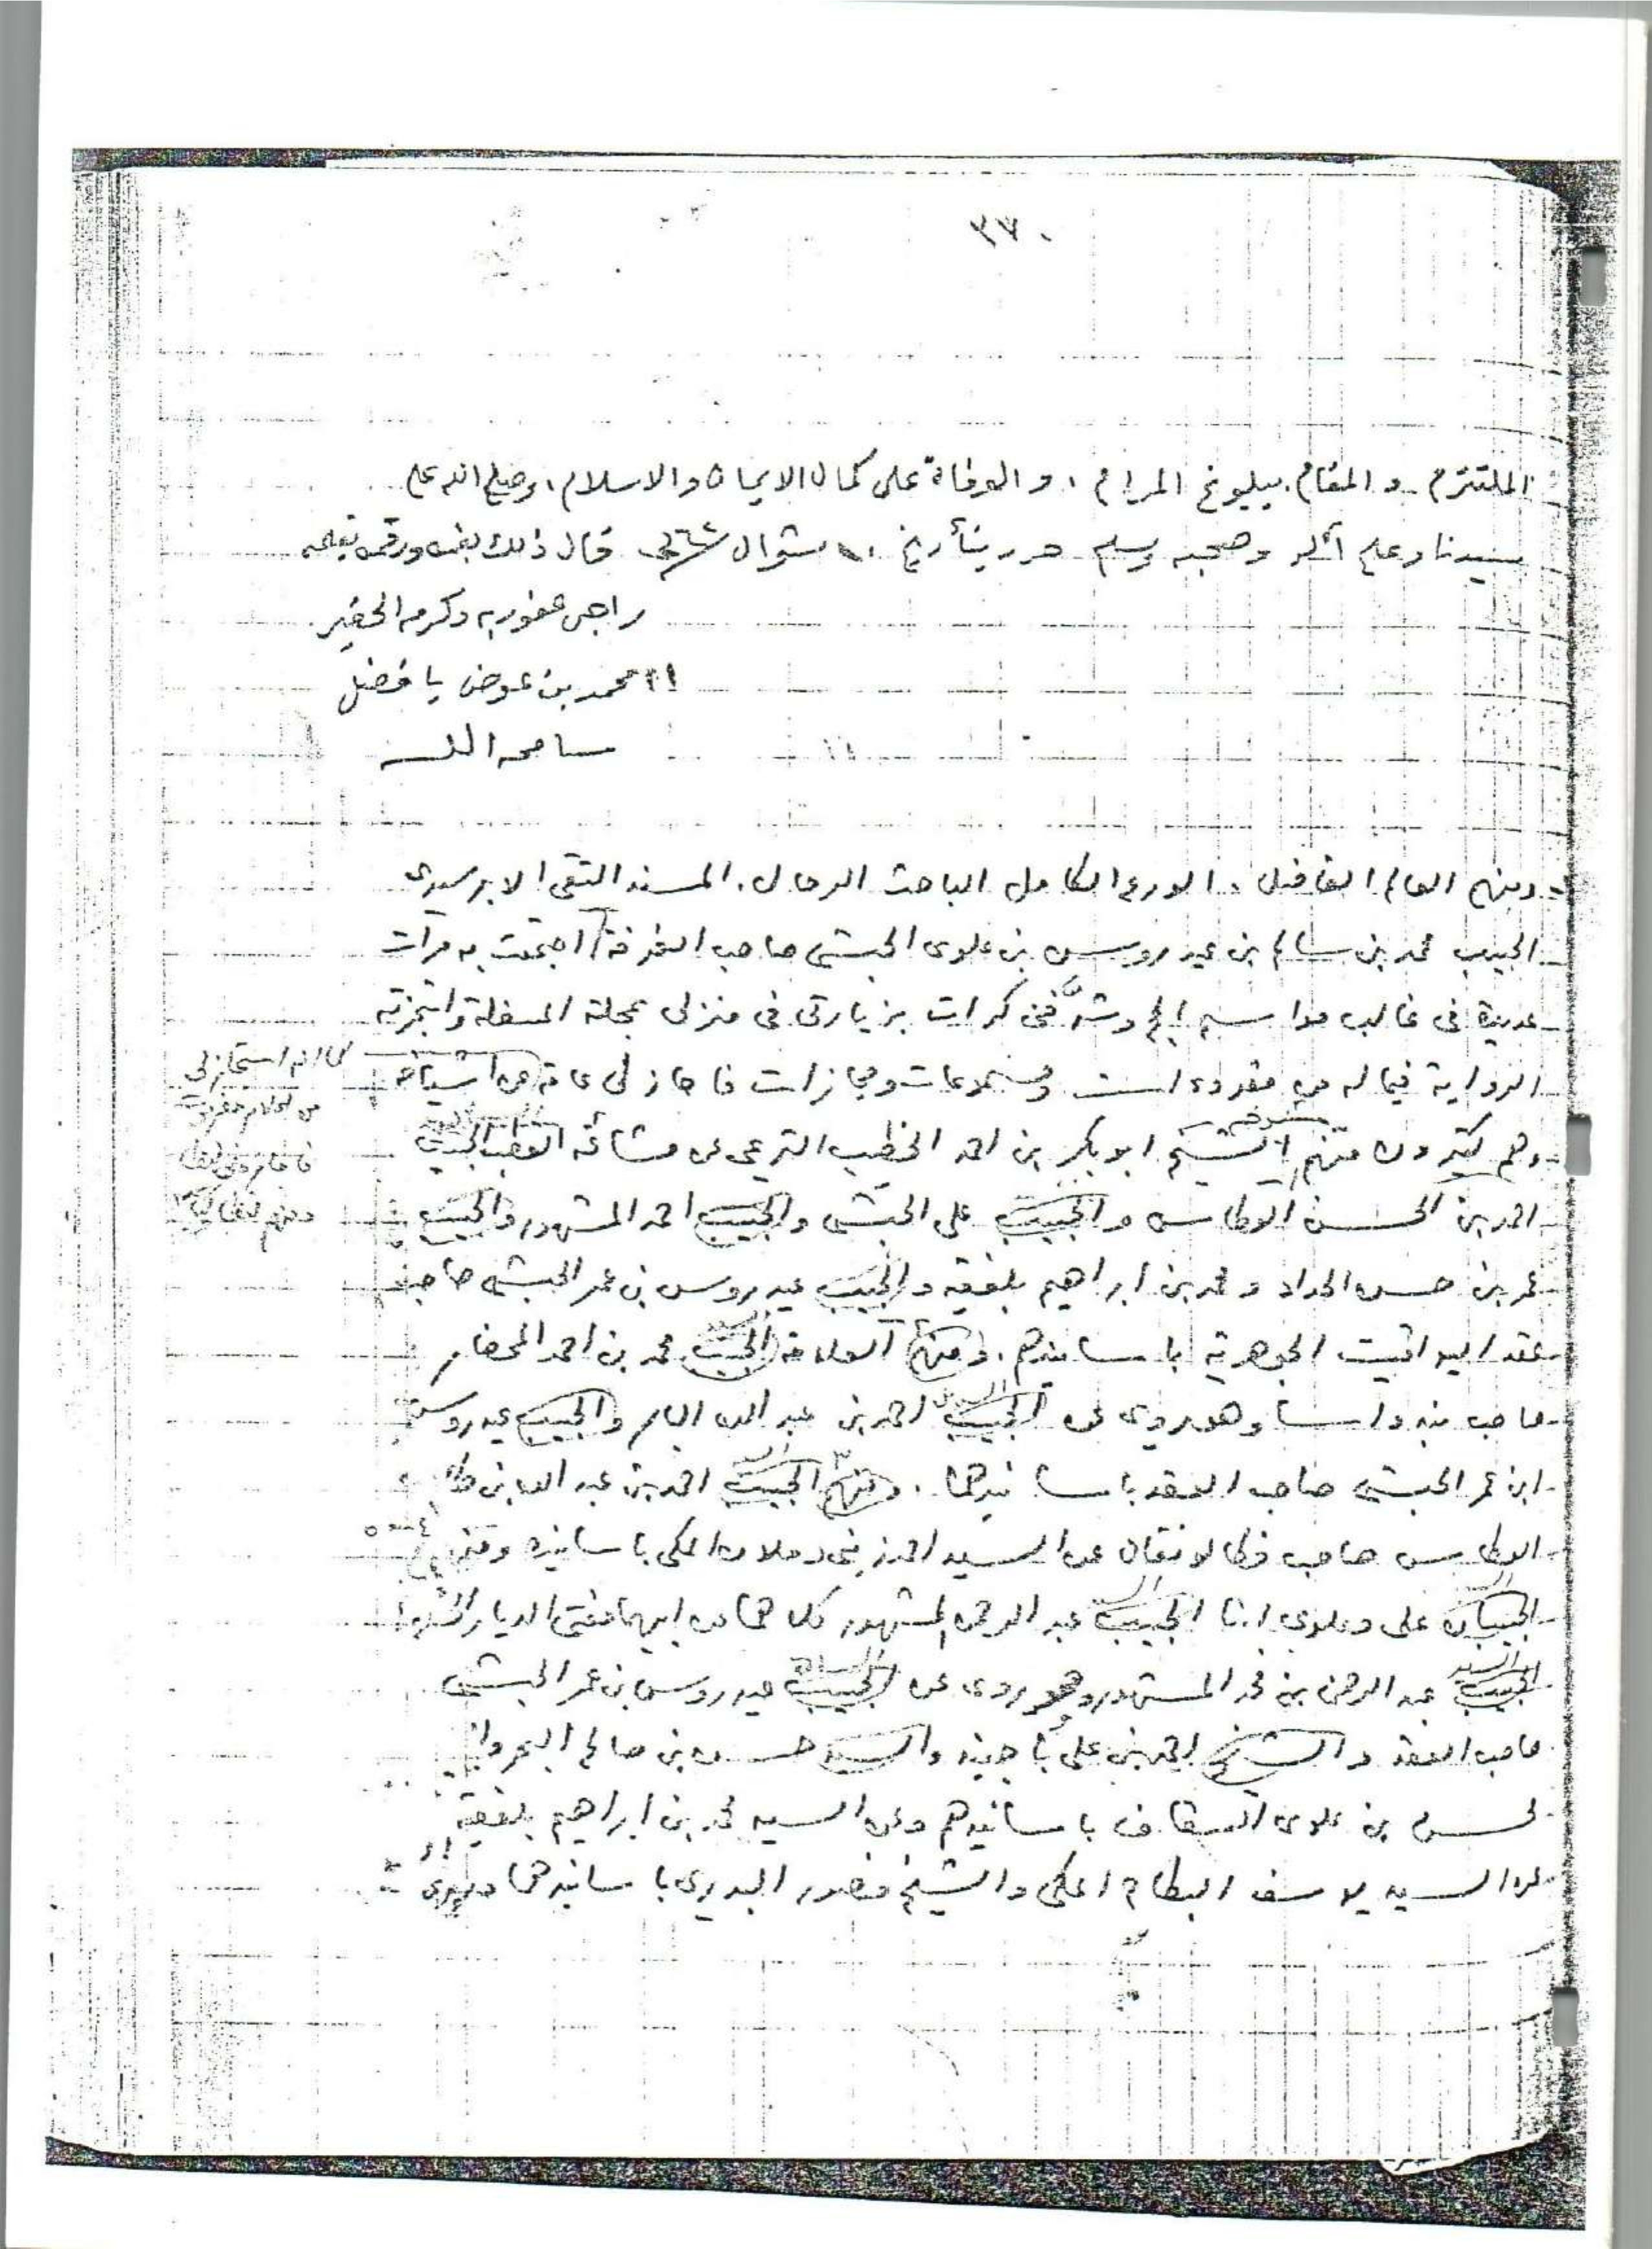 ٣٧٠
الملتزم والمقام ببلوغ المرام، والوفاة على كمال الايمان والاسلام، وصلى الله على
سيدنا وعلى آله وصحبه وسلم حرر بتأريخ شوال قال ذلك بفمه ورقمه بقلمه
راجي عفو ربه وكرمه الحقير
محمد بن عوض بافضل
سامحه الله
ومنهم العالم الفاضل، الورع الكامل الباحث الرحال، المسند التقي الابر سيدي
الحبيب محمد بن سالم بن عيدروس بن علوي الحبشي صاحب الغرفة اجتمعت به مرات
عديدة في غالب مواسم الحج وشرفني كرات بزيارتي في منزلي بمحلة المسفلة واستجزته
الرواية فيما له من مقروءات ومسموعات ومجازات فاجاز لي عامة عن اشياخه
وهم كثيرون منهم الشيخ ابو بكر بن احمد الخطيب التريمي عن مشائخه القطب الحبيب
احمد بن الحسن العطاس والحبيب علي الحبشي والحبيب احمد المشهور والحبيب
عمر بن حسن الحداد ومحمد بن ابراهيم بلفقيه والحبيب عيدروس بن عمر الحبشي صاحب
عقد اليواقيت الجوهرية باسانيدهم. ومنهم العلامة الحبيب محمد بن احمد المحضار
صاحب بندواسا وهو يروي عن الحبيب احمد بن عبد الله البار والحبيب عيدروس
ابن عمر الحبشي صاحب العقد باسانيدهما. ومنهم الحبيب احمد بن عبد الله بن طالب
العطاس صاحب فكالونقان عن السيد احمد زيني دحلان المكي باسانيده ومنهم
الحبيبان علي وعلوي ابنا الحبيب عبد الرحمن المشهور كلاهما عن ابيهما مفتي الديار
الحبيب عبد الرحمن بن محمد المشهور وهو يروي عن الحبيب عيدروس بن عمر الحبشي
صاحب العقد والشيخ احمد بن علي باجنيد والسيد حسن بن صالح البحر وابي
لحسن بن علوي السقاف باسانيدهم وعن السيد محمد بن ابراهيم بلفقيه
عن السيد يوسف البطاح المكي والشيخ منصور البديري باسانيدهما ويروي
كما انه استجازني